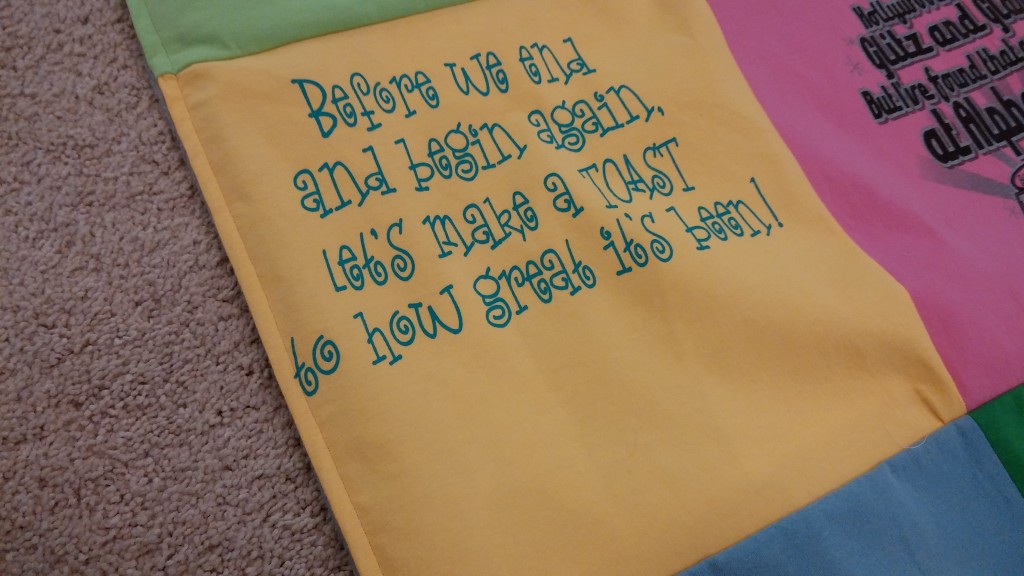 Before we end
and begin again,
let's make a TOAST
to how great it's been!
Glitz and
But I've found that
at